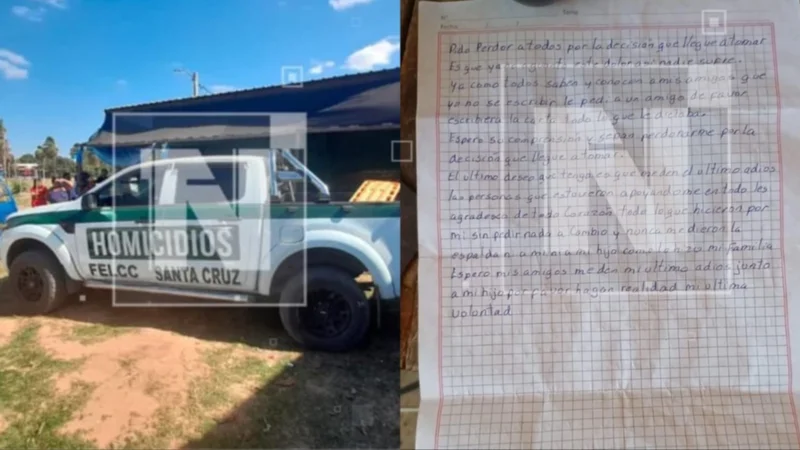 HOMICIDIOS
FELCC SANTA CRUZ
Fecha
Tema
Pido Perdor a todos por la decisión que llegue a tomar
Es que ya este dolor nadie supre.
Ya como todos saben y conocen a mis amigas que
yo no se escribir le pedi a un amigo de favor
escribiera la carta todo lo que le dictaba.
Espero su comprension y sepan perdonarme por la
decisión que llegue a tomar.
El ultimo deseo que tengo es que me den el ultimo adios
las personas que estuvieron apoyandome en todo les
agradesco de todo Corazón todo lo que hicieron por
mi sin pedir nada a cambio y nunca me dieron la
espalda ni a mi ni a mi hijo como lo hizo mi familia
Espero mis amigos me den mi ultimo adios junto
a mi hijo por favor hagan realidad mi ultima
voluntad